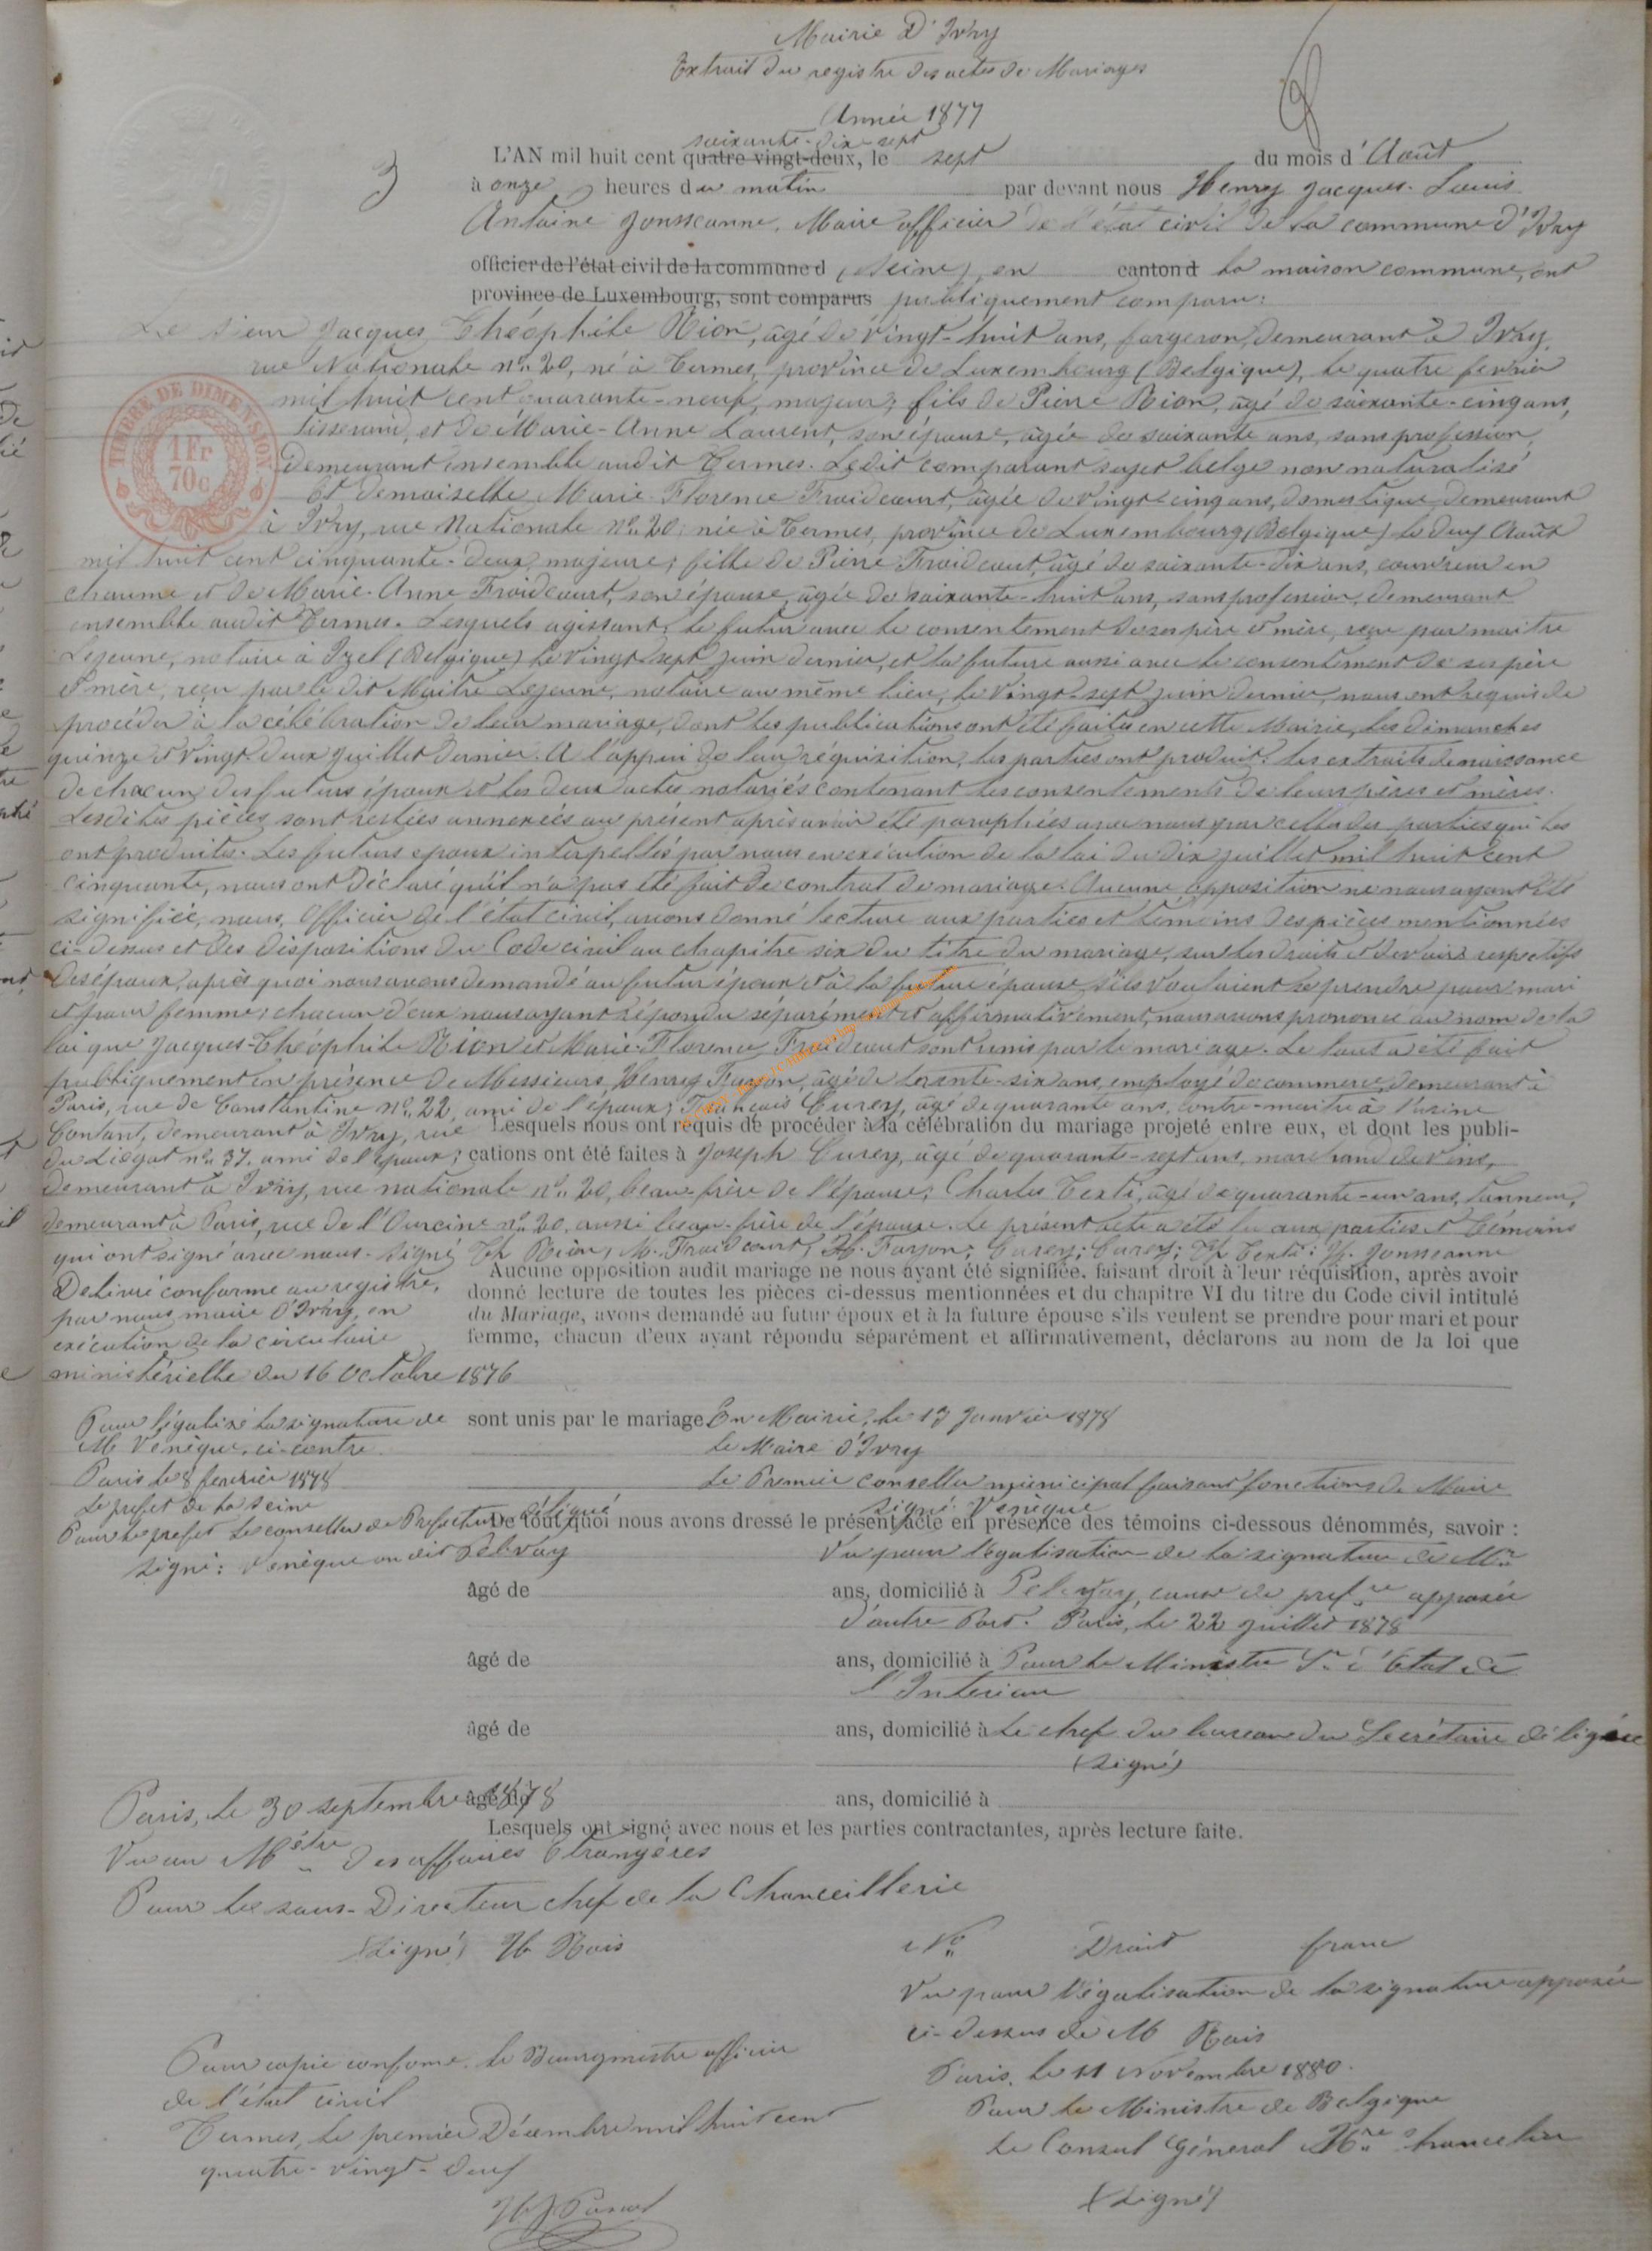 Mairie d'Ivry
Extrait du registre des actes de Mariages
Année 1877
soixante-dix-sept
L'AN mil huit cent quatre vingt-deux, le sept du mois d'Août
3
à onze heures du matin par devant nous Henry Jacques-Louis
Antoine Jousseanne, Maire officier de l'état civil de la commune d'Ivry
officier de l'état civil de la commune d (Seine), en canton d la maison commune, ont
province de Luxembourg, sont comparus publiquement comparu:
Le sieur Jacques Théophile Rion, âgé de vingt-huit ans, forgeron, demeurant à Ivry,
rue Nationale n° 20, né à Termes, province de Luxembourg (Belgique), le quatre fevrier
mil huit cent quarante-neuf, majeur; fils de Pierre Rion, âgé de soixante-cinq ans,
TIMBRE DE DIMENSION
1 Fr
70c
tisserand, et de Marie-Anne Laurent, son épouse, âgée de soixante ans, sans profession,
demeurant ensemble audit Termes. Ledit comparant sujet belge non naturalisé
Et demoiselle Marie Florence Froidcourt, âgée de vingt-cinq ans, domestique, demeurant
à Ivry, rue Nationale n° 20; née à Termes, province de Luxembourg (Belgique) le deux Août
mil huit cent cinquante-deux, majeure; fille de Pierre Froidcourt, âgé de soixante-dix ans, couvreur en
chaume et de Marie-Anne Froidcourt, son épouse, âgée de soixante-huit ans, sans profession, demeurant
ensemble audit Termes. Lesquels agissant, le futur avec le consentement de ses père et mère, reçu par maitre
Lejeune, notaire à Izel (Belgique) le vingt-sept juin dernier, et la future aussi avec le consentement de ses père
et mère, reçu par le dit Maitre Lejeune, notaire au même lieu, le vingt-sept juin dernier, nous ont requis de
procéder à la célébration de leur mariage, dont les publications ont été faites en cette Mairie, les dimanches
quinze et vingt-deux Juillet dernier. A l'appui de leur réquisition, les parties ont produit: les extraits de naissance
de chacun des futurs époux et les deux actes notariés contenant les consentements de leurs pères et mères.
Lesdites pièces sont restées annexées au présent après avoir été paraphées par nous par celle des parties qui les
ont produites. Les futurs epoux interpellés par nous en exécution de la loi du dix juillet mil huit cent
cinquante, nous ont déclaré qu'il n'a pas été fait de contrat de mariage. Aucune opposition ne nous ayant été
signifiée, nous, Officier de l'état civil, avons donné lecture aux parties et témoins des pièces mentionnées
ci-dessus et des dispositions du Code civil au chapitre six du titre du mariage, sur les droits et devoirs respectifs
des époux, après quoi nous avons demandé au futur époux et à la future épouse s'ils voulaient se prendre pour mari
et pour femme; chacun d'eux nous ayant répondu séparément et affirmativement, nous avons prononcé au nom de la
loi que Jacques-Théophile Rion et Marie-Florence Froidcourt sont unis par le mariage. Le tout a été fait
publiquement en présence de Messieurs Henry Furson, âgé de trente-six ans, employé de commerce, demeurant à
Paris, rue de Constantine n° 22, ami de l'époux; François Curey, âgé de quarante ans, contre-maitre à l'usine
Contant, demeurant à Ivry, rue Lesquels nous ont requis de procéder à la célébration du mariage projeté entre eux, et dont les publi-
du Liegat n° 37, ami de l'époux; cations ont été faites à Joseph Curey, âgé de quarante-sept ans, marchand de vins,
demeurant à Ivry, rue nationale n° 20, beau-frère de l'épouse; Charles Texti, âgé de quarante-un ans, tanneur,
demeurant à Paris, rue de l'Ourcine n° 20, aussi beau-frère de l'épouse. Le présent acte a été lu aux parties et témoins
qui ont signé avec nous. Signé Th Rion; M. Froidcourt; H. Furson; Curey; Curey; Ch Texti; H. Jousseanne
Aucune opposition audit mariage ne nous ayant été signifiée. faisant droit à leur réquisition, après avoir
Delivré conforme au registre, donné lecture de toutes les pièces ci-dessus mentionnées et du chapitre VI du titre du Code civil intitulé
par nous, maire d'Ivry, en du Mariage, avons demandé au futur époux et à la future épouse s'ils veulent se prendre pour mari et pour
exécution de la circulaire femme, chacun d'eux ayant répondu séparément et affirmativement, déclarons au nom de la loi que
ministérielle du 16 octobre 1876
Pour légalisé la signature de sont unis par le mariage. En Mairie, le 17 Janvier 1878
M Venèque, ci-contre. le Maire d'Ivry
Paris le 8 fevrier 1878 Le Premier conseiller municipal faisant fonctions de Maire
Le prefet de la Seine signé: Venèque
Pour le prefet Le conseiller de Prefecture délégué
De tout quoi nous avons dressé le présent acte en présence des témoins ci-dessous dénommés, savoir :
signé: Venèque on dit Pelvay Vu pour légalisation de la signature de Mr
âgé de ans, domicilié à Pelvay, conser de prefre apposée
d'autre Part. Paris, le 22 juillet 1878
âgé de ans, domicilié à Pour le Ministre Sre d'Etat de
l'Interieur
âgé de ans, domicilié à Le chef du bureau du Secrétaire délégué
(signé)
Paris, le 30 septembre 1878
âgé de ans, domicilié à
Lesquels ont signé avec nous et les parties contractantes, après lecture faite.
Vu au Mstre des affaires Etrangères
Pour le sous-Directeur chef de la Chancellerie
(signé) H Rois
N° Droit franc
Vu pour légalisation de la signature apposée
ci-dessus de M Rois
Paris, le 11 Novembre 1880.
Pour le Ministre de Belgique
Le Consul Général Hre chancelier
(signé)
Pour copie conforme. le Bourgmestre officier
de l'état civil
Termes, le premier Décembre mil huit cent
quatre-vingt-deux